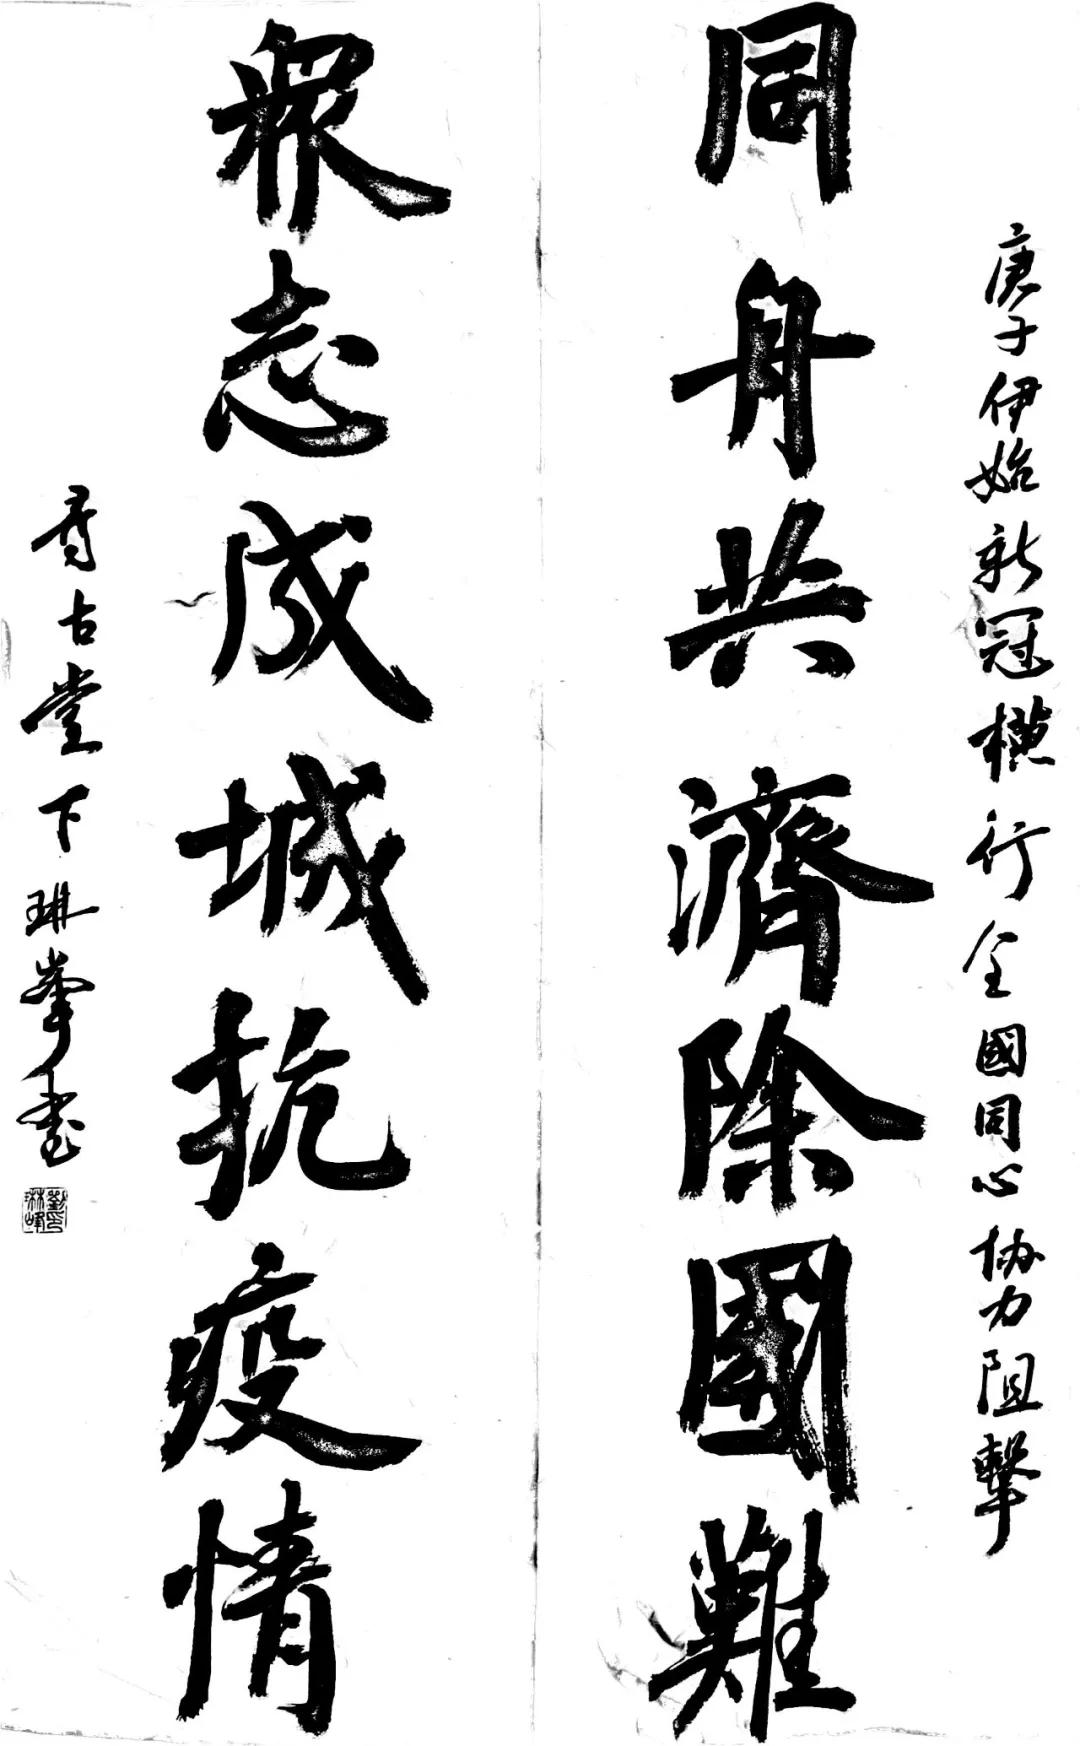 庚子伊始新冠橫行全國同心协力阻擊
同舟共濟除國難
衆志成城抗疫情
尋古堂下琳峯書